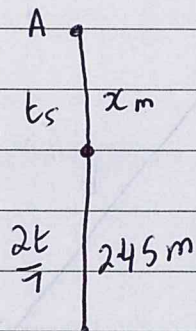 A
ts xm
2t/7 245m